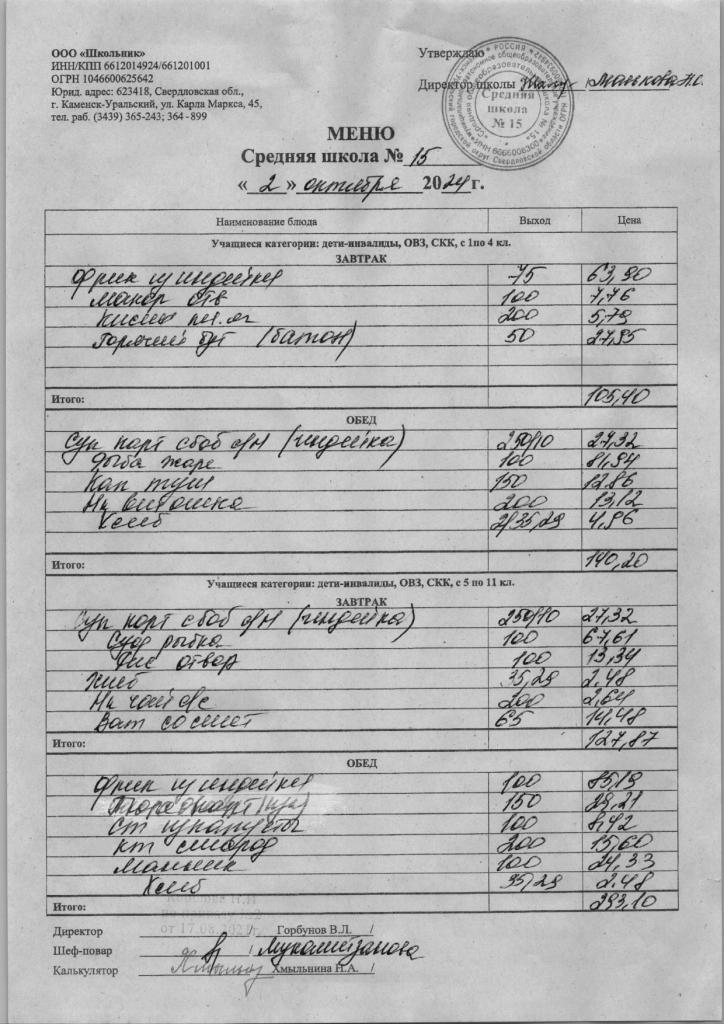 ООО «Школьник»
ИНН/КПП 6612014924/661201001
ОГРН 1046600625642
Юрид. адрес: 623418, Свердловская обл.,
г. Каменск-Уральский, ул. Карла Маркса, 45,
тел. раб. (3439) 365-243; 364 -899
Утверждаю
Директор школы
Средняя школа № 15
МЕНЮ
Средняя школа № 15
« 2 » октября 2024 г.
Наименование блюда Выход Цена
Учащиеся категории: дети-инвалиды, ОВЗ, СКК, с 1по 4 кл.
ЗАВТРАК
Фрик из индейки 75 63,90
Макар отв 100 7,76
200 5,79
Горячий бут (батон) 50 27,95
Итого: 105,40
ОБЕД
Суп карт с боб (индейка) 250/10 27,32
Рыба жаре 100 81,94
Кап туш 150 12,86
На витошка 200 13,12
Хлеб 2/35,29 4,96
Итого: 140,20
Учащиеся категории: дети-инвалиды, ОВЗ, СКК, с 5 по 11 кл.
ЗАВТРАК
Суп карт с боб (индейка) 250/10 27,32
Суд рыбка 100 67,61
Рис отвар 100 13,34
Хлеб 35,29 2,48
На чай 200 2,64
Ват со смет 65 14,48
Итого: 127,87
ОБЕД
Фрик из индейки 100 85,19
150
Ст из капусты 100 8,42
кт смород 200 15,60
Манник 100 24,33
Хлеб 35/29 2,48
Итого: 293,10
Директор / Горбунов В.Л. /
Шеф-повар / Мукаметзанова
Калькулятор / Хмыльнина Н.А. /